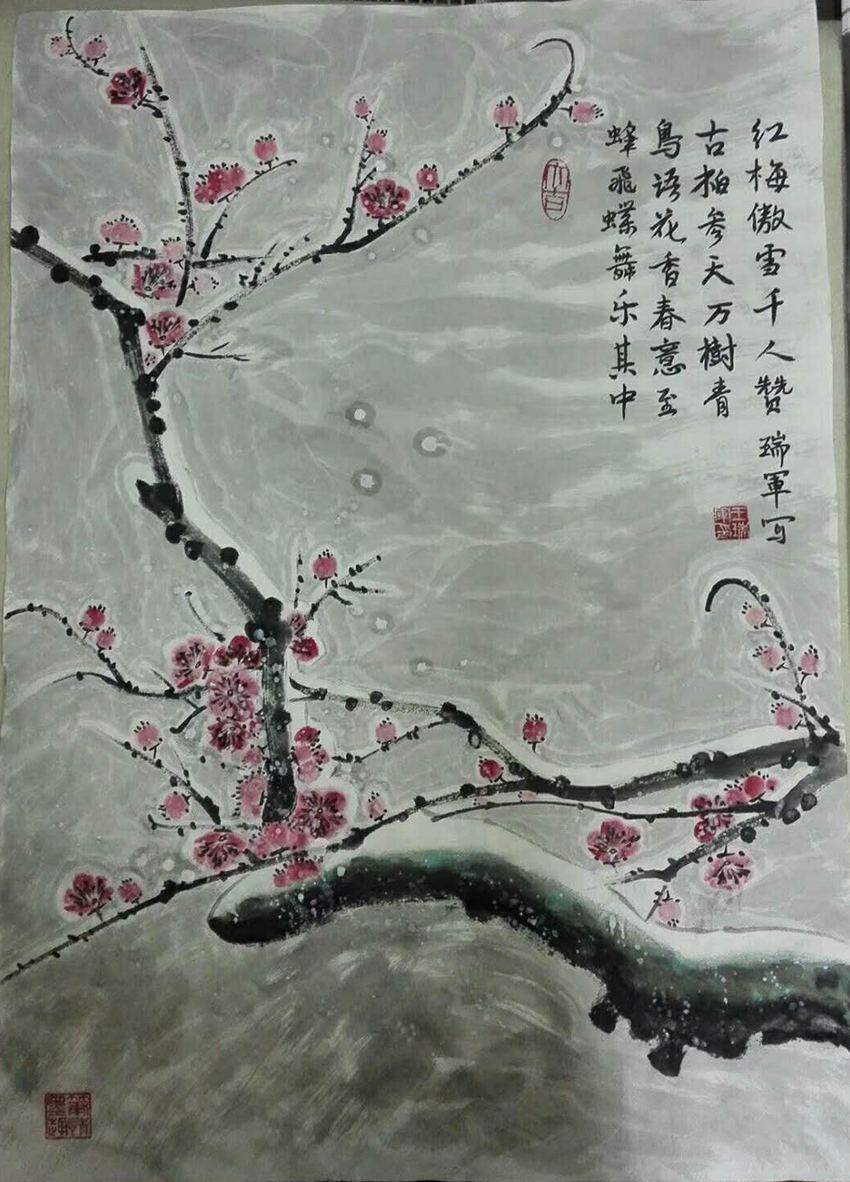 红梅傲雪千人赞 瑞軍写
古柏参天万樹青
鳥语花香春意至
蜂飛蝶舞乐其中